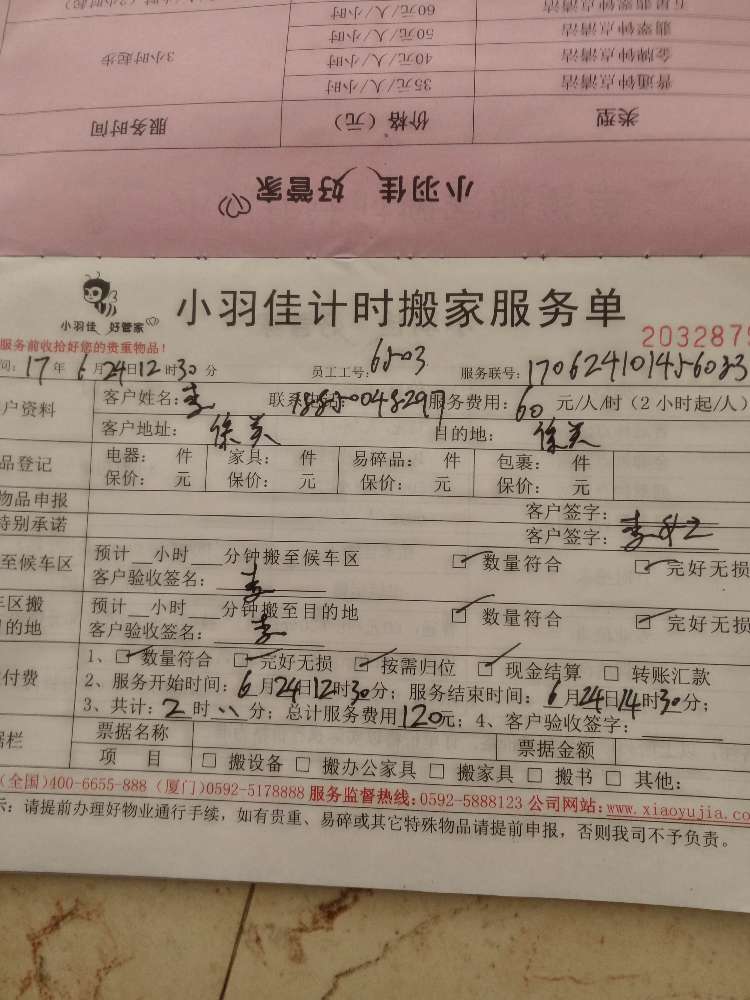 五星翡翠钟点清洁 60元/人/小时
翡翠钟点清洁 50元/人/小时
金牌钟点清洁 40元/人/小时 3小时起步
普通钟点清洁 35元/人/小时
类型 价格（元） 服务时间
小羽佳 好管家
小羽佳 好管家
小羽佳计时搬家服务单
服务前收拾好您的贵重物品！
2032875
间：17年6月24日12时30分 员工工号：6503 服务联号：
户资料 客户姓名：李 服务费用：60元/人/时（2小时起/人）
客户地址： 目的地：
品登记 电器： 件 家具： 件 易碎品： 件 包裹： 件
保价： 元 保价： 元 保价： 元 保价： 元
物品申报 客户签字：
特别承诺 客户签字：
至候车区 预计__小时___分钟搬至候车区 数量符合 完好无损
客户验收签名：李
车区搬 预计__小时___分钟搬至目的地 数量符合 完好无损
目的地 客户验收签名：李
付费 1、数量符合 完好无损 按需归位 现金结算 转账汇款
2、服务开始时间：6月24日12时30分；服务结束时间：6月24日14时30分；
3、共计：2时分；总计服务费用120元；4、客户验收签字：
据栏 票据名称 票据金额
项 目 搬设备 搬办公家具 搬家具 搬书 其他：
(全国)400-6655-888 (厦门)0592-5178888 服务监督热线:0592-5888123 公司网站:www.xiaoyujia.co
示：请提前办理好物业通行手续，如有贵重、易碎或其它特殊物品请提前申报，否则我司不予负责。